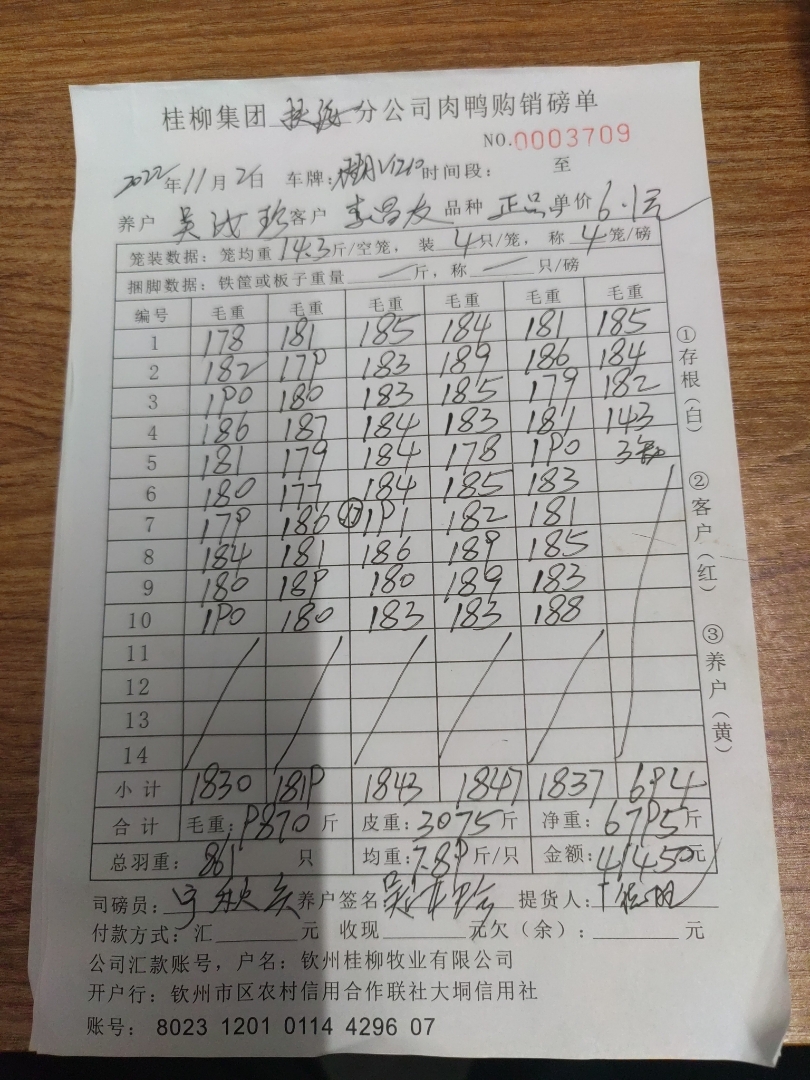 桂柳集团 钦海 分公司肉鸭购销磅单
NO.0003709
2022年11月2日 车牌: 时间段: 至
养户 吴 珍 客户 李昌友 品种 正品 单价 6.1元
笼装数据：笼均重 14.3 斤/空笼， 装 4 只/笼， 称 4 笼/磅
捆脚数据：铁筐或板子重量 — 斤，称 — 只/磅
编号 毛重 毛重 毛重 毛重 毛重 毛重
1 178 181 185 184 181 185
2 182 179 183 189 186 184
3 190 180 183 185 179 182
4 186 187 184 183 181 143
5 181 179 184 178 190 3
6 180 177 184 185 183
7 179 186 191 182 181
8 184 181 186 189 185
9 180 189 180 189 183
10 190 180 183 183 188
11
12
13
14
小计 1830 1819 1843 1847 1837 694
合计 毛重: 9870 斤 皮重: 3075 斤 净重: 6795 斤
总羽重: 861 只 均重: 7.89 斤/只 金额: 41450 元
司磅员: 养户签名 提货人:
付款方式: 汇 元 收现 元欠（余）: 元
公司汇款账号，户名：钦州桂柳牧业有限公司
开户行：钦州市区农村信用合作联社大垌信用社
账号: 8023 1201 0114 4296 07
①存根（白）
②客户（红）
③养户（黄）